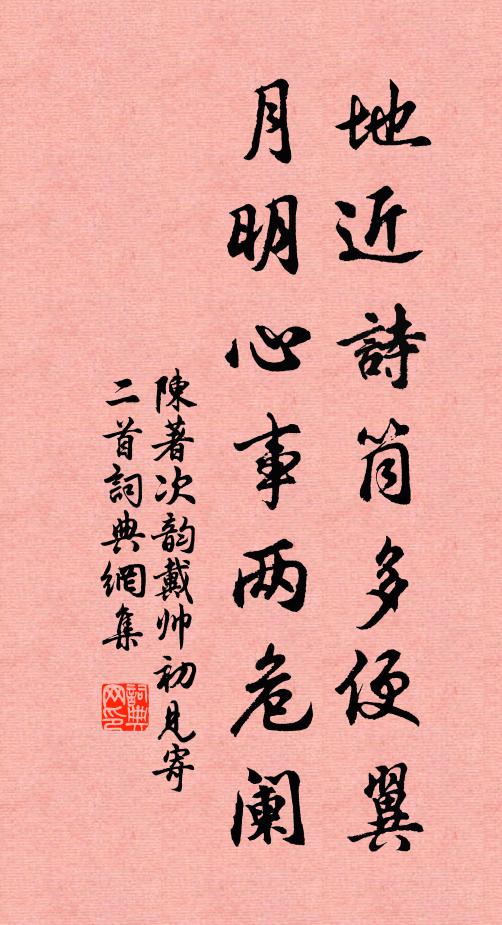 地近詩筒多便翼
月明心事两危阑
陳著次韵戴帅初見寄
二首詞典網集
詞典網印